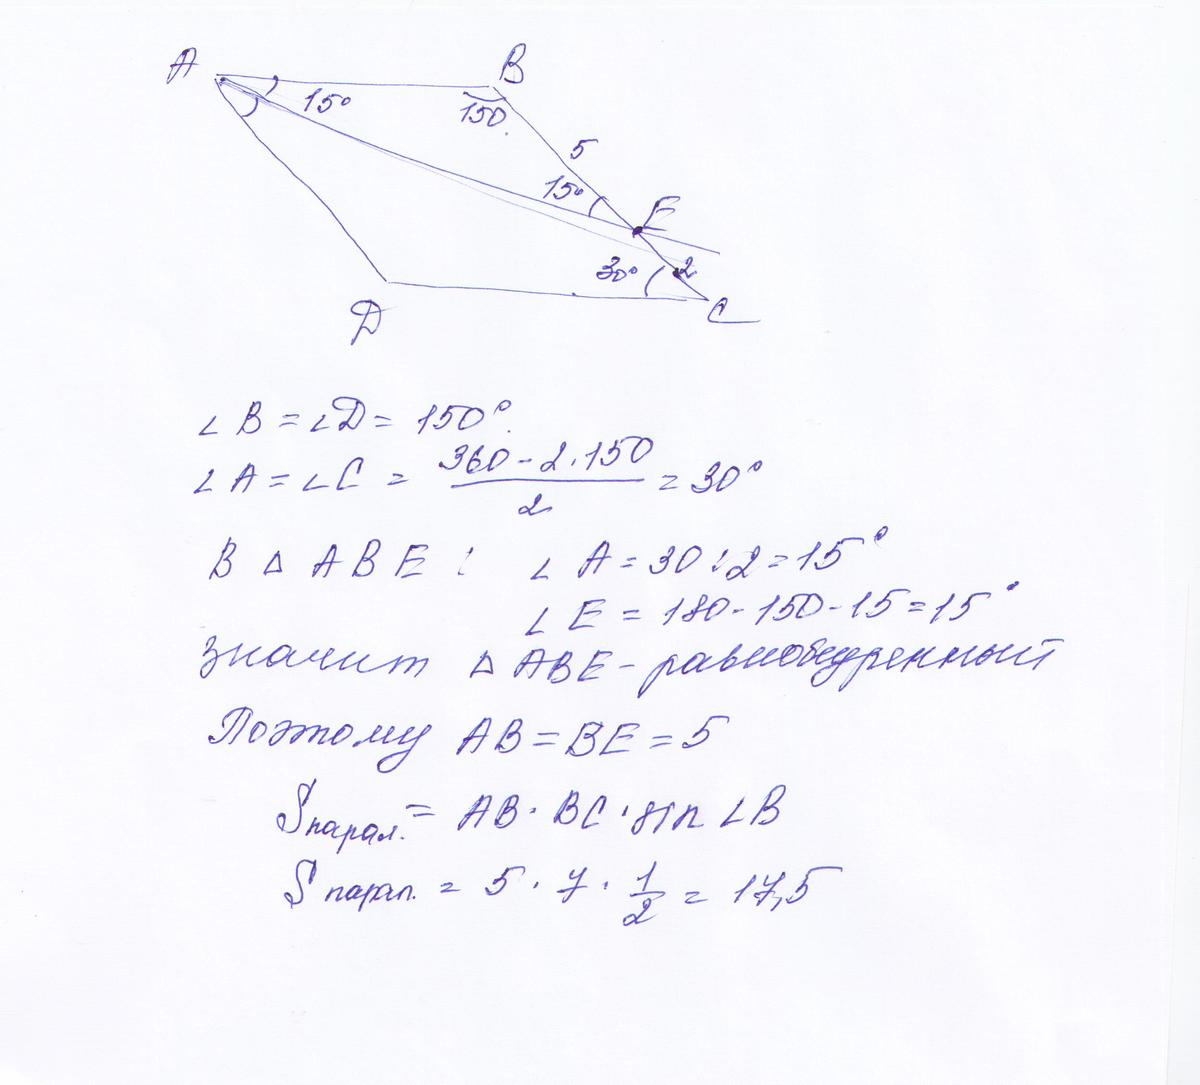 A
B
15°
150.
5
15°
E
30°
2
D
C
∠B = ∠D = 150°.
∠A = ∠C = (360 - 2·150)/2 = 30°
В △ ABE : ∠A = 30:2 = 15°
∠E = 180 - 150 - 15 = 15°
значит △ ABE - равнобедренный
Поэтому AB = BE = 5
Sпарал. = AB · BC · sin ∠B
Sпарал. = 5 · 7 · 1/2 = 17,5